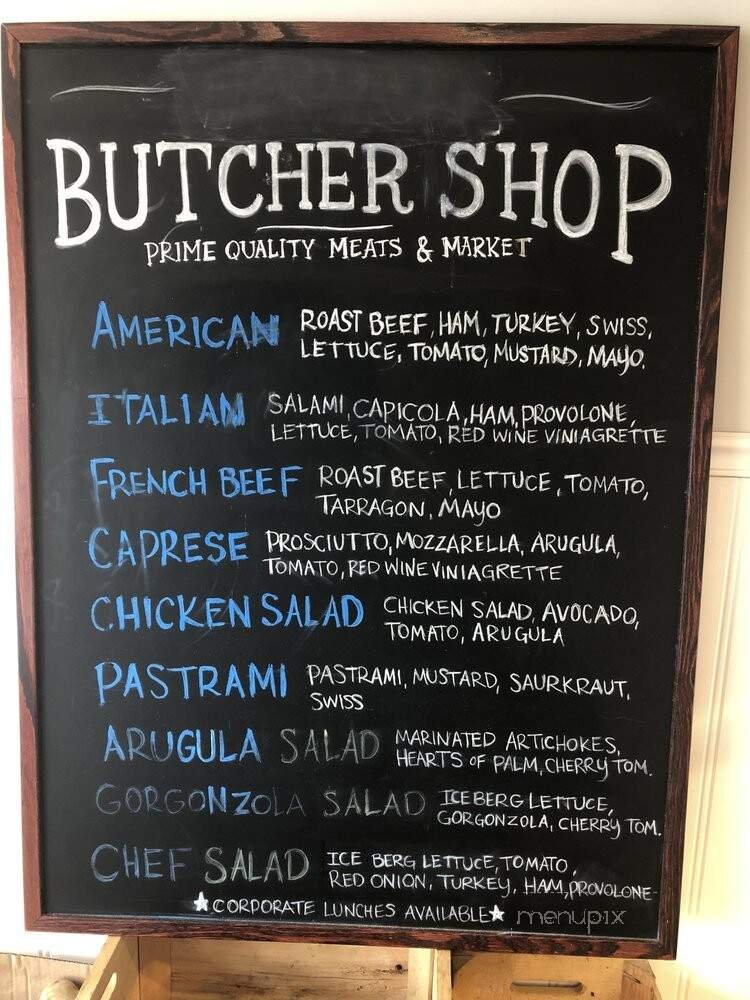 BUTCHER SHOP
PRIME QUALITY MEATS & MARKET
AMERICAN ROAST BEEF, HAM, TURKEY, SWISS,
LETTUCE, TOMATO, MUSTARD, MAYO.
ITALIAN SALAMI, CAPICOLA, HAM, PROVOLONE,
LETTUCE, TOMATO, RED WINE VINIAGRETTE
FRENCH BEEF ROAST BEEF, LETTUCE, TOMATO,
TARRAGON, MAYO
CAPRESE PROSCIUTTO, MOZZARELLA, ARUGULA,
TOMATO, RED WINE VINIAGRETTE
CHICKEN SALAD CHICKEN SALAD, AVOCADO,
TOMATO, ARUGULA
PASTRAMI PASTRAMI, MUSTARD, SAURKRAUT,
SWISS
ARUGULA SALAD MARINATED ARTICHOKES,
HEARTS OF PALM, CHERRY TOM.
GORGONZOLA SALAD ICEBERG LETTUCE,
GORGONZOLA, CHERRY TOM.
CHEF SALAD ICE BERG LETTUCE, TOMATO,
RED ONION, TURKEY, HAM, PROVOLONE
★CORPORATE LUNCHES AVAILABLE★ menupix